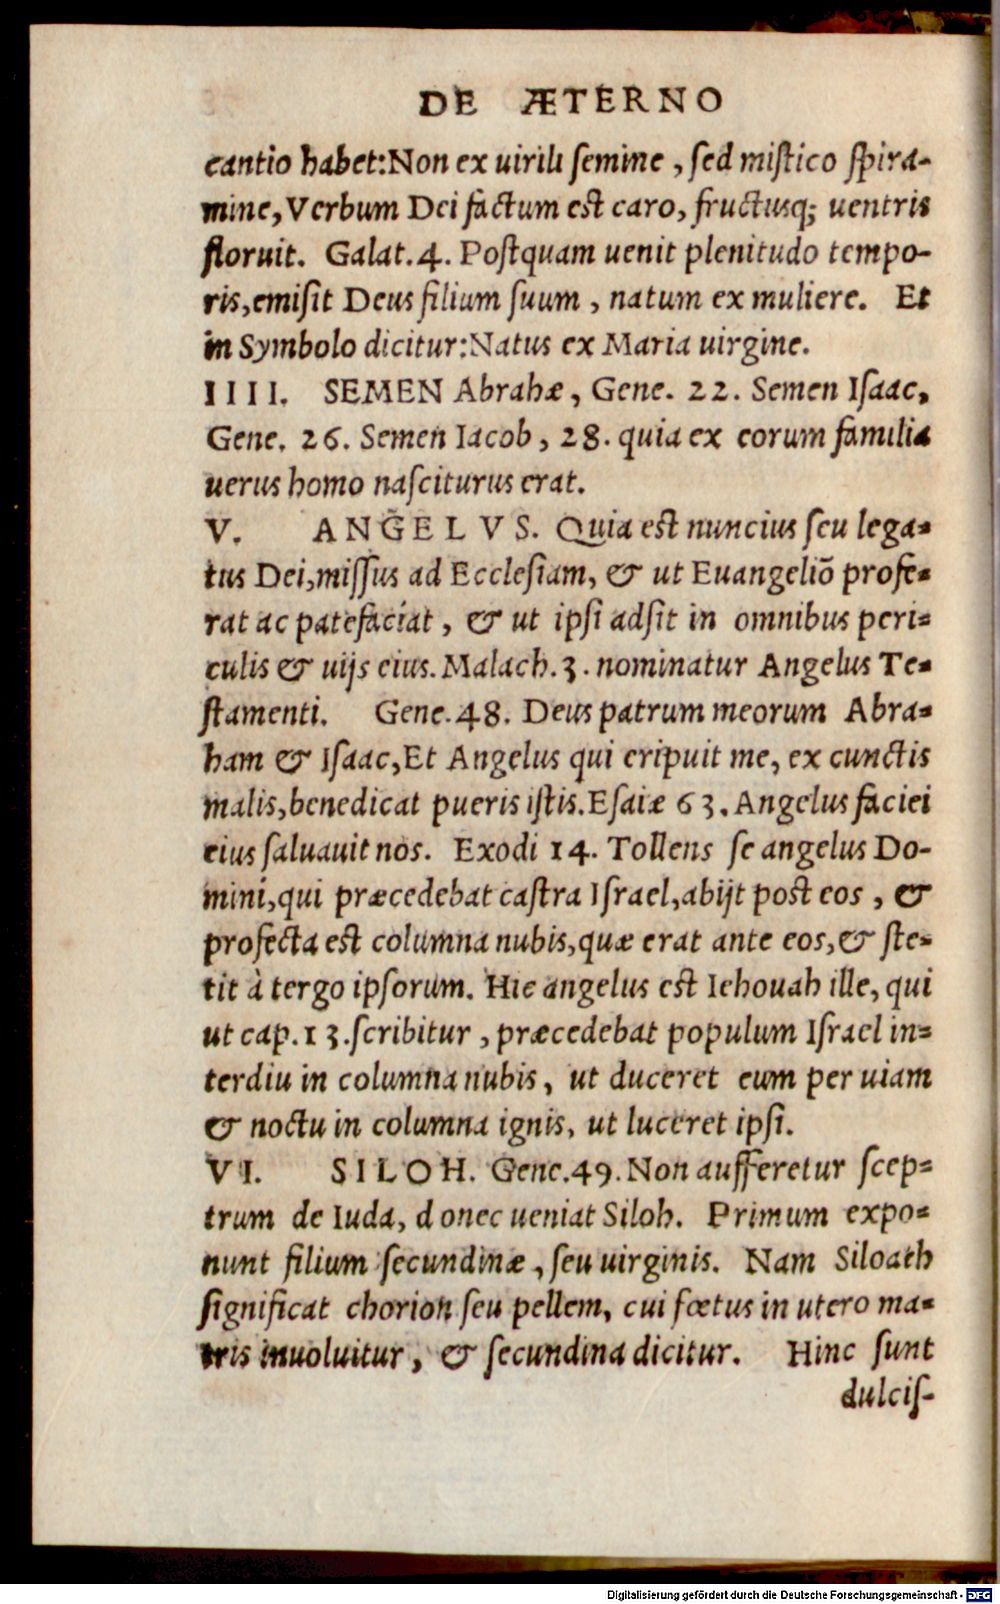 DE ÆTERNO
cantio habet:Non ex uirili ſemine, ſed miſtico ſpira-
mine, Verbum Dei factum est caro, fructusq; uentris
floruit. Galat.4. Poſtquam uenit plenitudo tempo-
ris,emiſit Deus filium ſuum, natum ex muliere. Et
in Symbolo dicitur:Natus ex Maria uirgine.
IIII. SEMEN Abrahæ, Gene. 22. Semen Iſaac,
Gene. 26. Semen Iacob, 28. quia ex eorum familia
uerus homo naſciturus erat.
V. ANGELVS. Quia est nuncius ſeu lega-
tus Dei,miſſus ad Eccleſiam, & ut Euangeliō profe-
rat ac patefaciat, & ut ipſi adſit in omnibus peri-
culis & uijs eius. Malach.3. nominatur Angelus Te-
ſtamenti. Gene.48. Deus patrum meorum Abra-
ham & Iſaac,Et Angelus qui eripuit me, ex cunctis
malis,benedicat pueris iſtis.Eſaiæ 63. Angelus faciei
eius ſaluauit nos. Exodi 14. Tollens ſe angelus Do-
mini,qui præcedebat caſtra Iſrael,abijt post eos, &
profecta est columna nubis,quæ erat ante eos,& ſte-
tit à tergo ipſorum. Hic angelus est Iehouah ille, qui
ut cap.13.ſcribitur, præcedebat populum Iſrael in-
terdiu in columna nubis, ut duceret eum per uiam
& noctu in columna ignis, ut luceret ipſi.
VI. SILOH. Gene.49.Non aufferetur ſcep-
trum de Iuda, donec ueniat Siloh. Primum expo-
nunt filium ſecundinæ, ſeu uirginis. Nam Siloath
ſignificat chorion ſeu pellem, cui fœtus in utero ma-
tris inuoluitur, & ſecundina dicitur. Hinc ſunt
dulciſ-
Digitalisierung gefördert durch die Deutsche Forschungsgemeinschaft - DFG